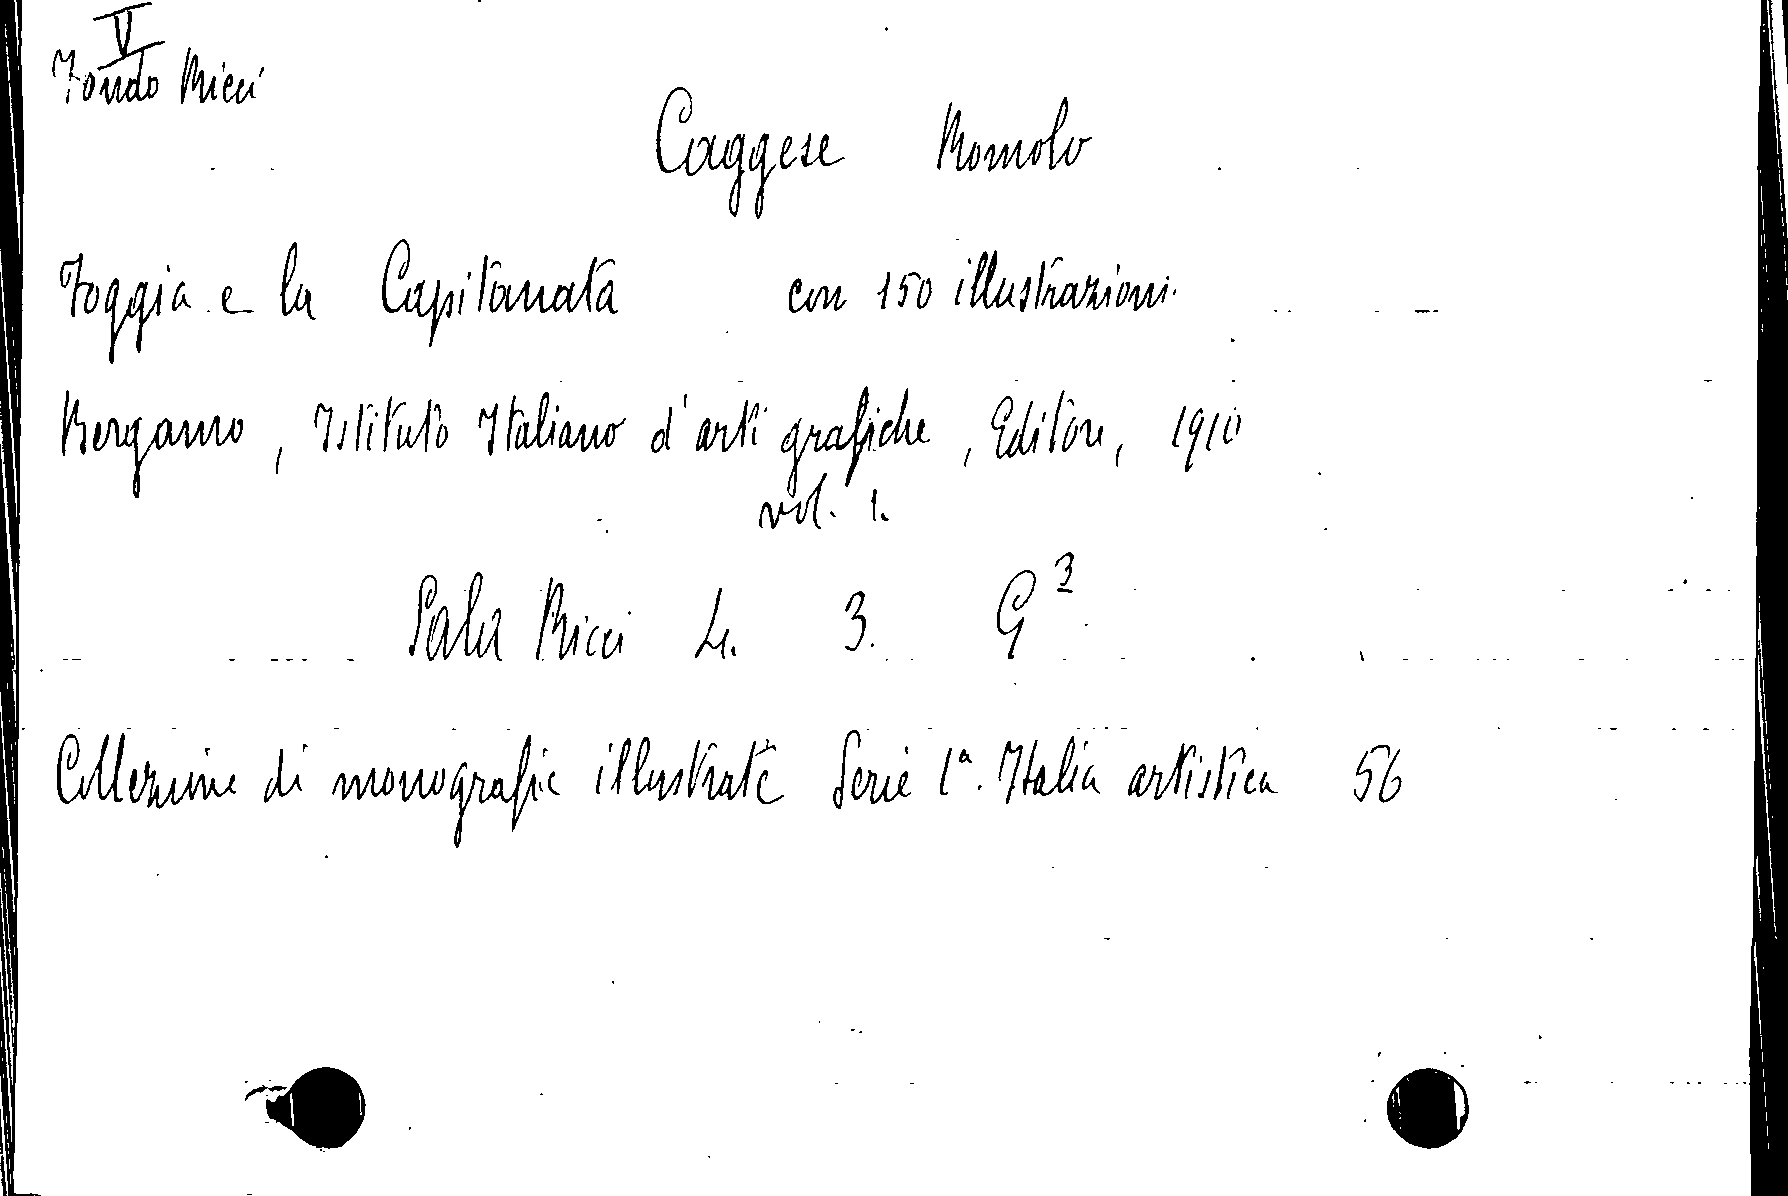 V
Fondo Ricci
Caggese Romolo
Foggia e la Capitanata con 150 illustrazioni.
Bergamo, Istituto Italiano d'arti grafiche, Editore, 1910
vol. 1.
Sala Ricci L. 3. G 3
Collezione di monografie illustrate Serie 1ª. Italia artistica 56